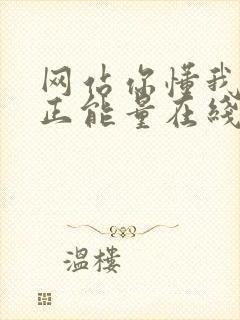 网站你懂我
正能量在线
温楼